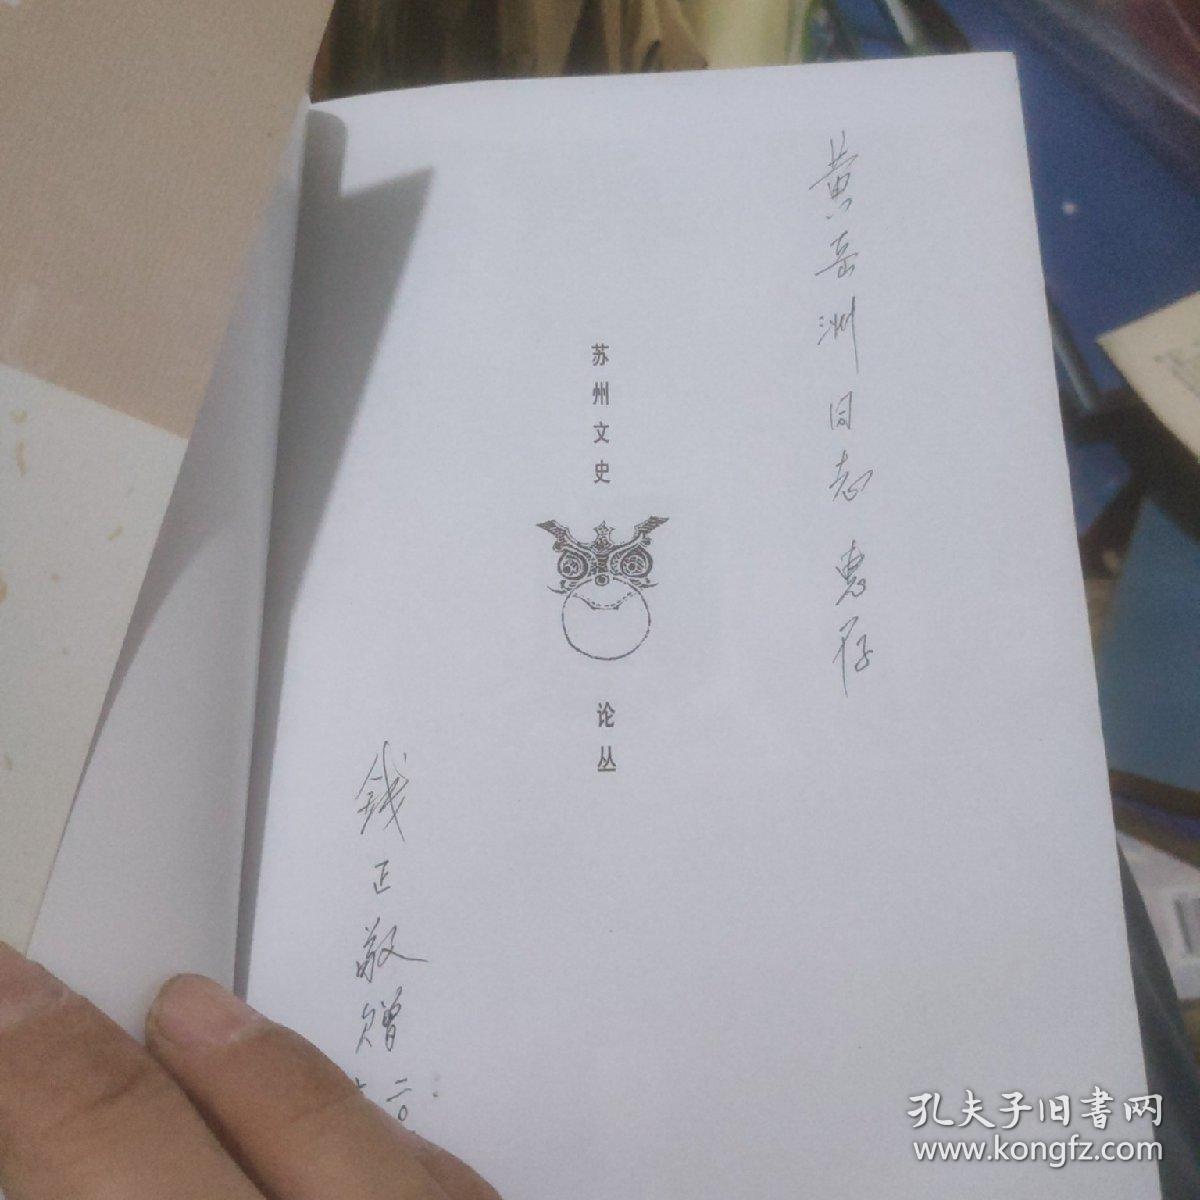 黄岳洲同志惠存
苏州文史
论丛
钱正敬赠
二〇
孔夫子旧书网
www.kongfz.com